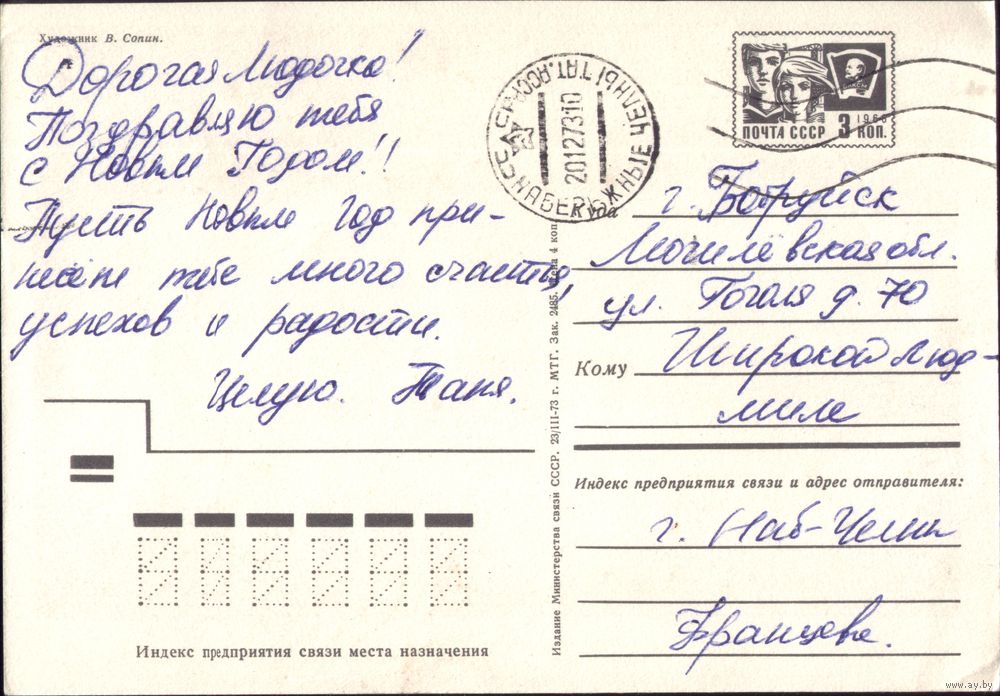 Художник В. Сопин.
Дорогая Людочка!
Поздравляю тебя
с Новым Годом!!
Пусть Новый год при-
несёт тебе много счастья,
успехов и радости.
Целую. Таня.
Индекс предприятия связи места назначения
Издание Министерства связи СССР. 23/III-73 г. МТГ. Зак. 2485. Цена 4 коп.
НАБЕРЕЖНЫЕ ЧЕЛНЫ ТАТ. АССР
СССР
20127310
ВЛКСМ
1966
ПОЧТА СССР 3 КОП.
Куда г. Бобруйск
Могилёвская обл.
ул. Гоголя д. 70
Кому Широкой Люд-
миле
Индекс предприятия связи и адрес отправителя:
г. Наб-Челны
Францева.
www.ay.by